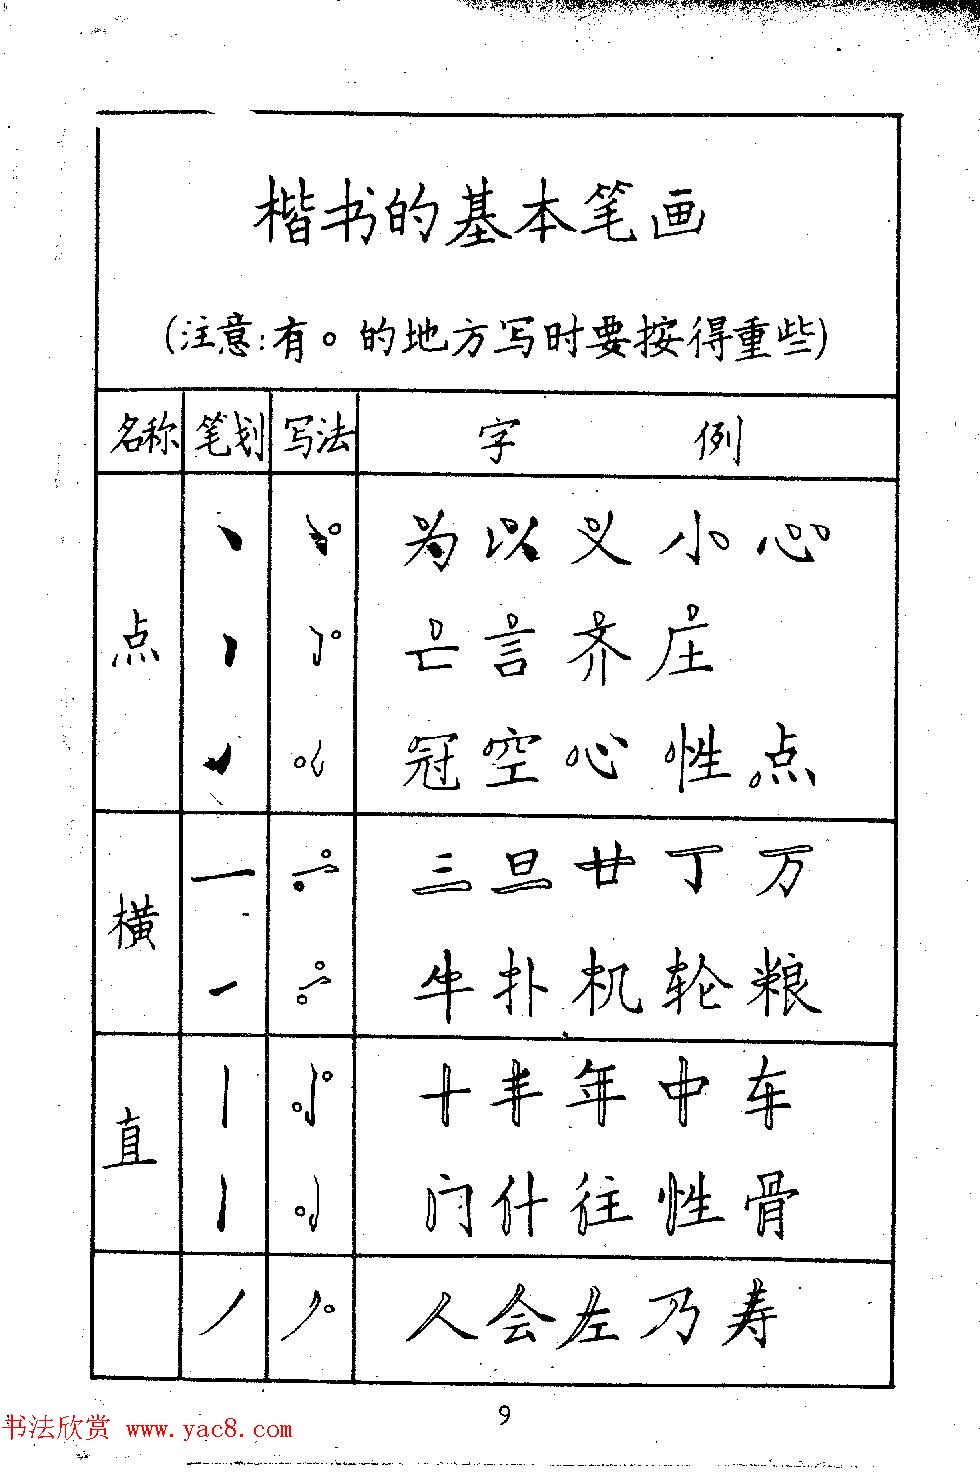 楷书的基本笔画
(注意:有。的地方写时要按得重些)
名称 笔划 写法 字 例
为 以 义 小 心
点 亡 言 齐 庄
冠 空 心 性 点
三 旦 廿 丁 万
横
牛 扑 机 轮 粮
十 丰 年 中 车
直
门 什 往 性 骨
人 会 左 乃 寿
9
书法欣赏 www.yac8.com